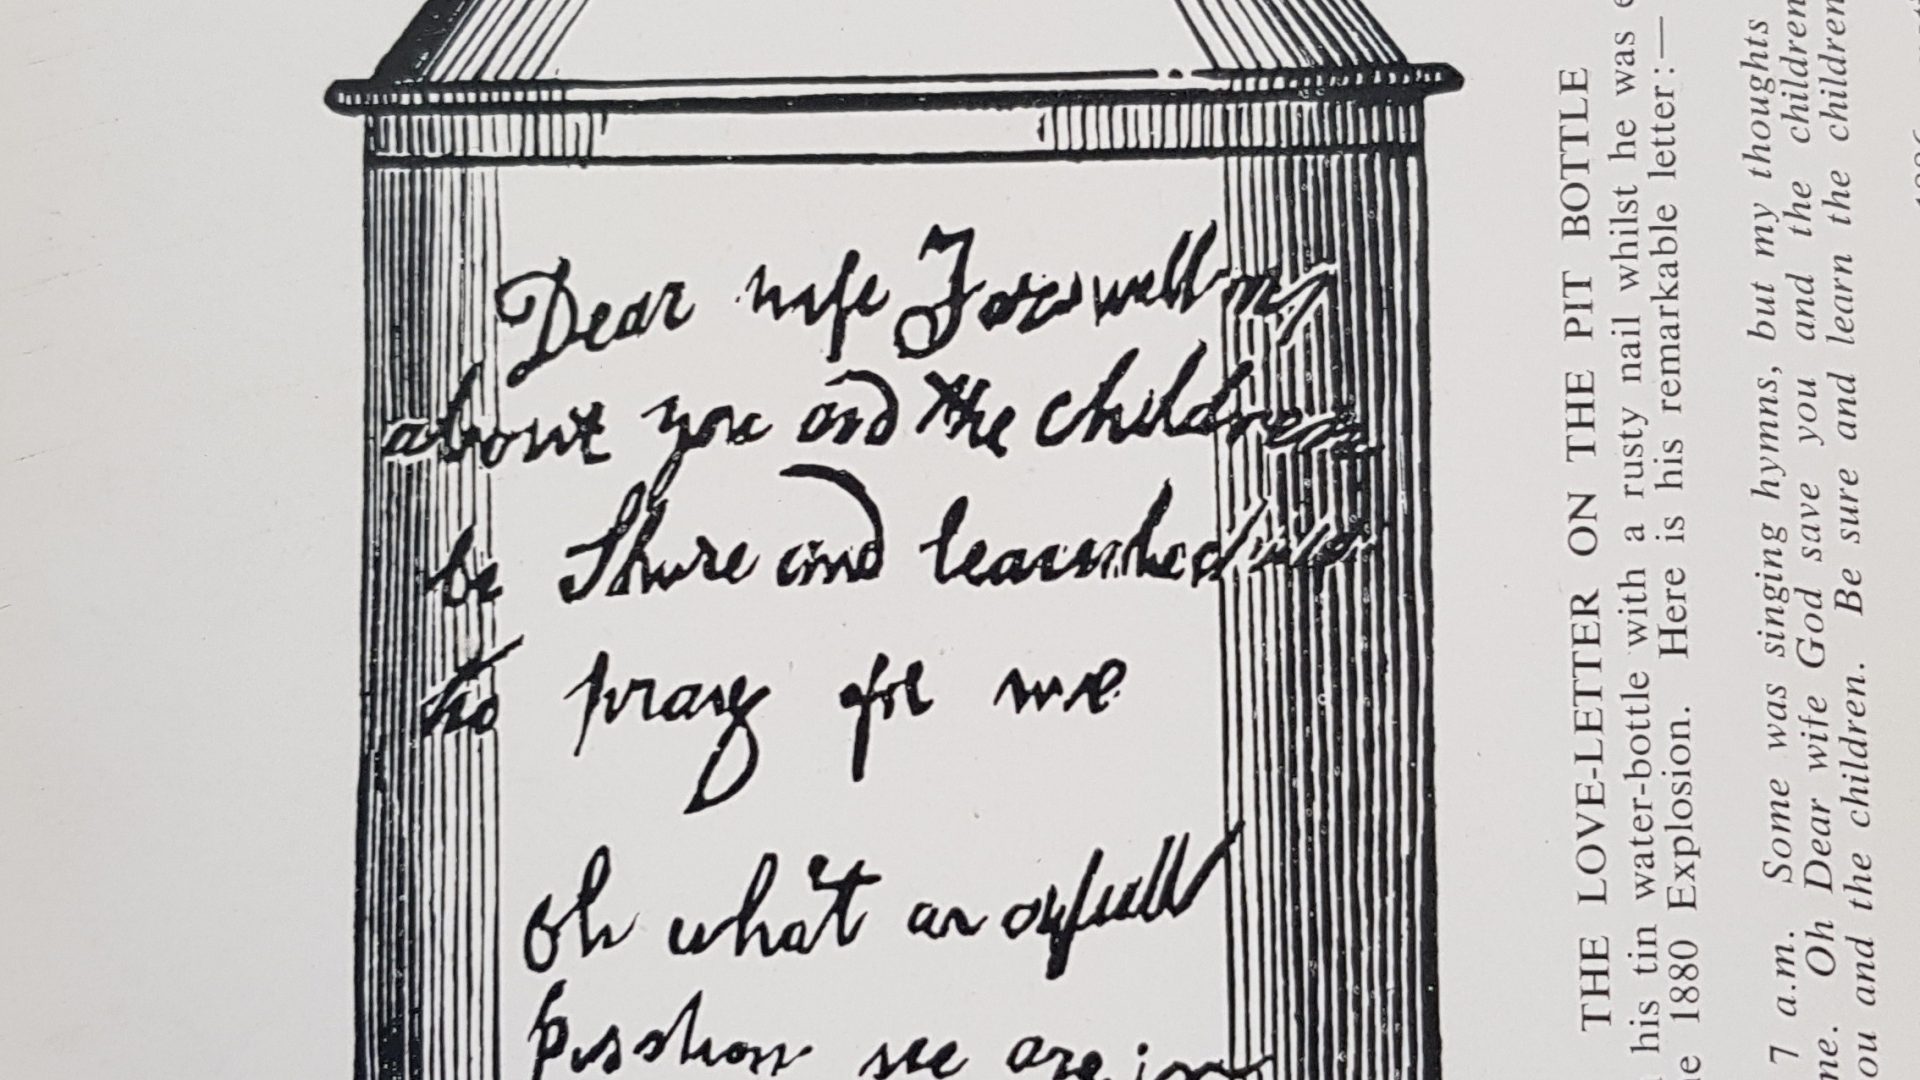 Dear wife Farewell my
about you and the children
be Shure and learn the
to pray for me
Oh what an awfull
posstion we are in
THE LOVE-LETTER ON THE PIT BOTTLE
his tin water-bottle with a rusty nail whilst he was
1880 Explosion. Here is his remarkable letter:—
7 a.m. Some was singing hymns, but my thoughts
me. Oh Dear wife God save you and the children
ou and the children. Be sure and learn the children